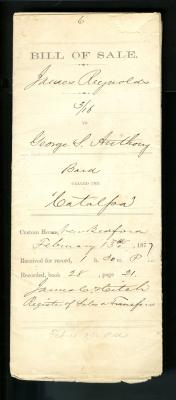 6
BILL OF SALE.
James Reynolds
3/16
TO
George S. Anthony
Bark
CALLED THE
"Catalpa"
Custom House, New Bedford
February 13th, 1877
Received for record, 1 h. 30 m P M.
Recorded, book 28, page 21.
James C. Hitch
Register of Sales & Transfers